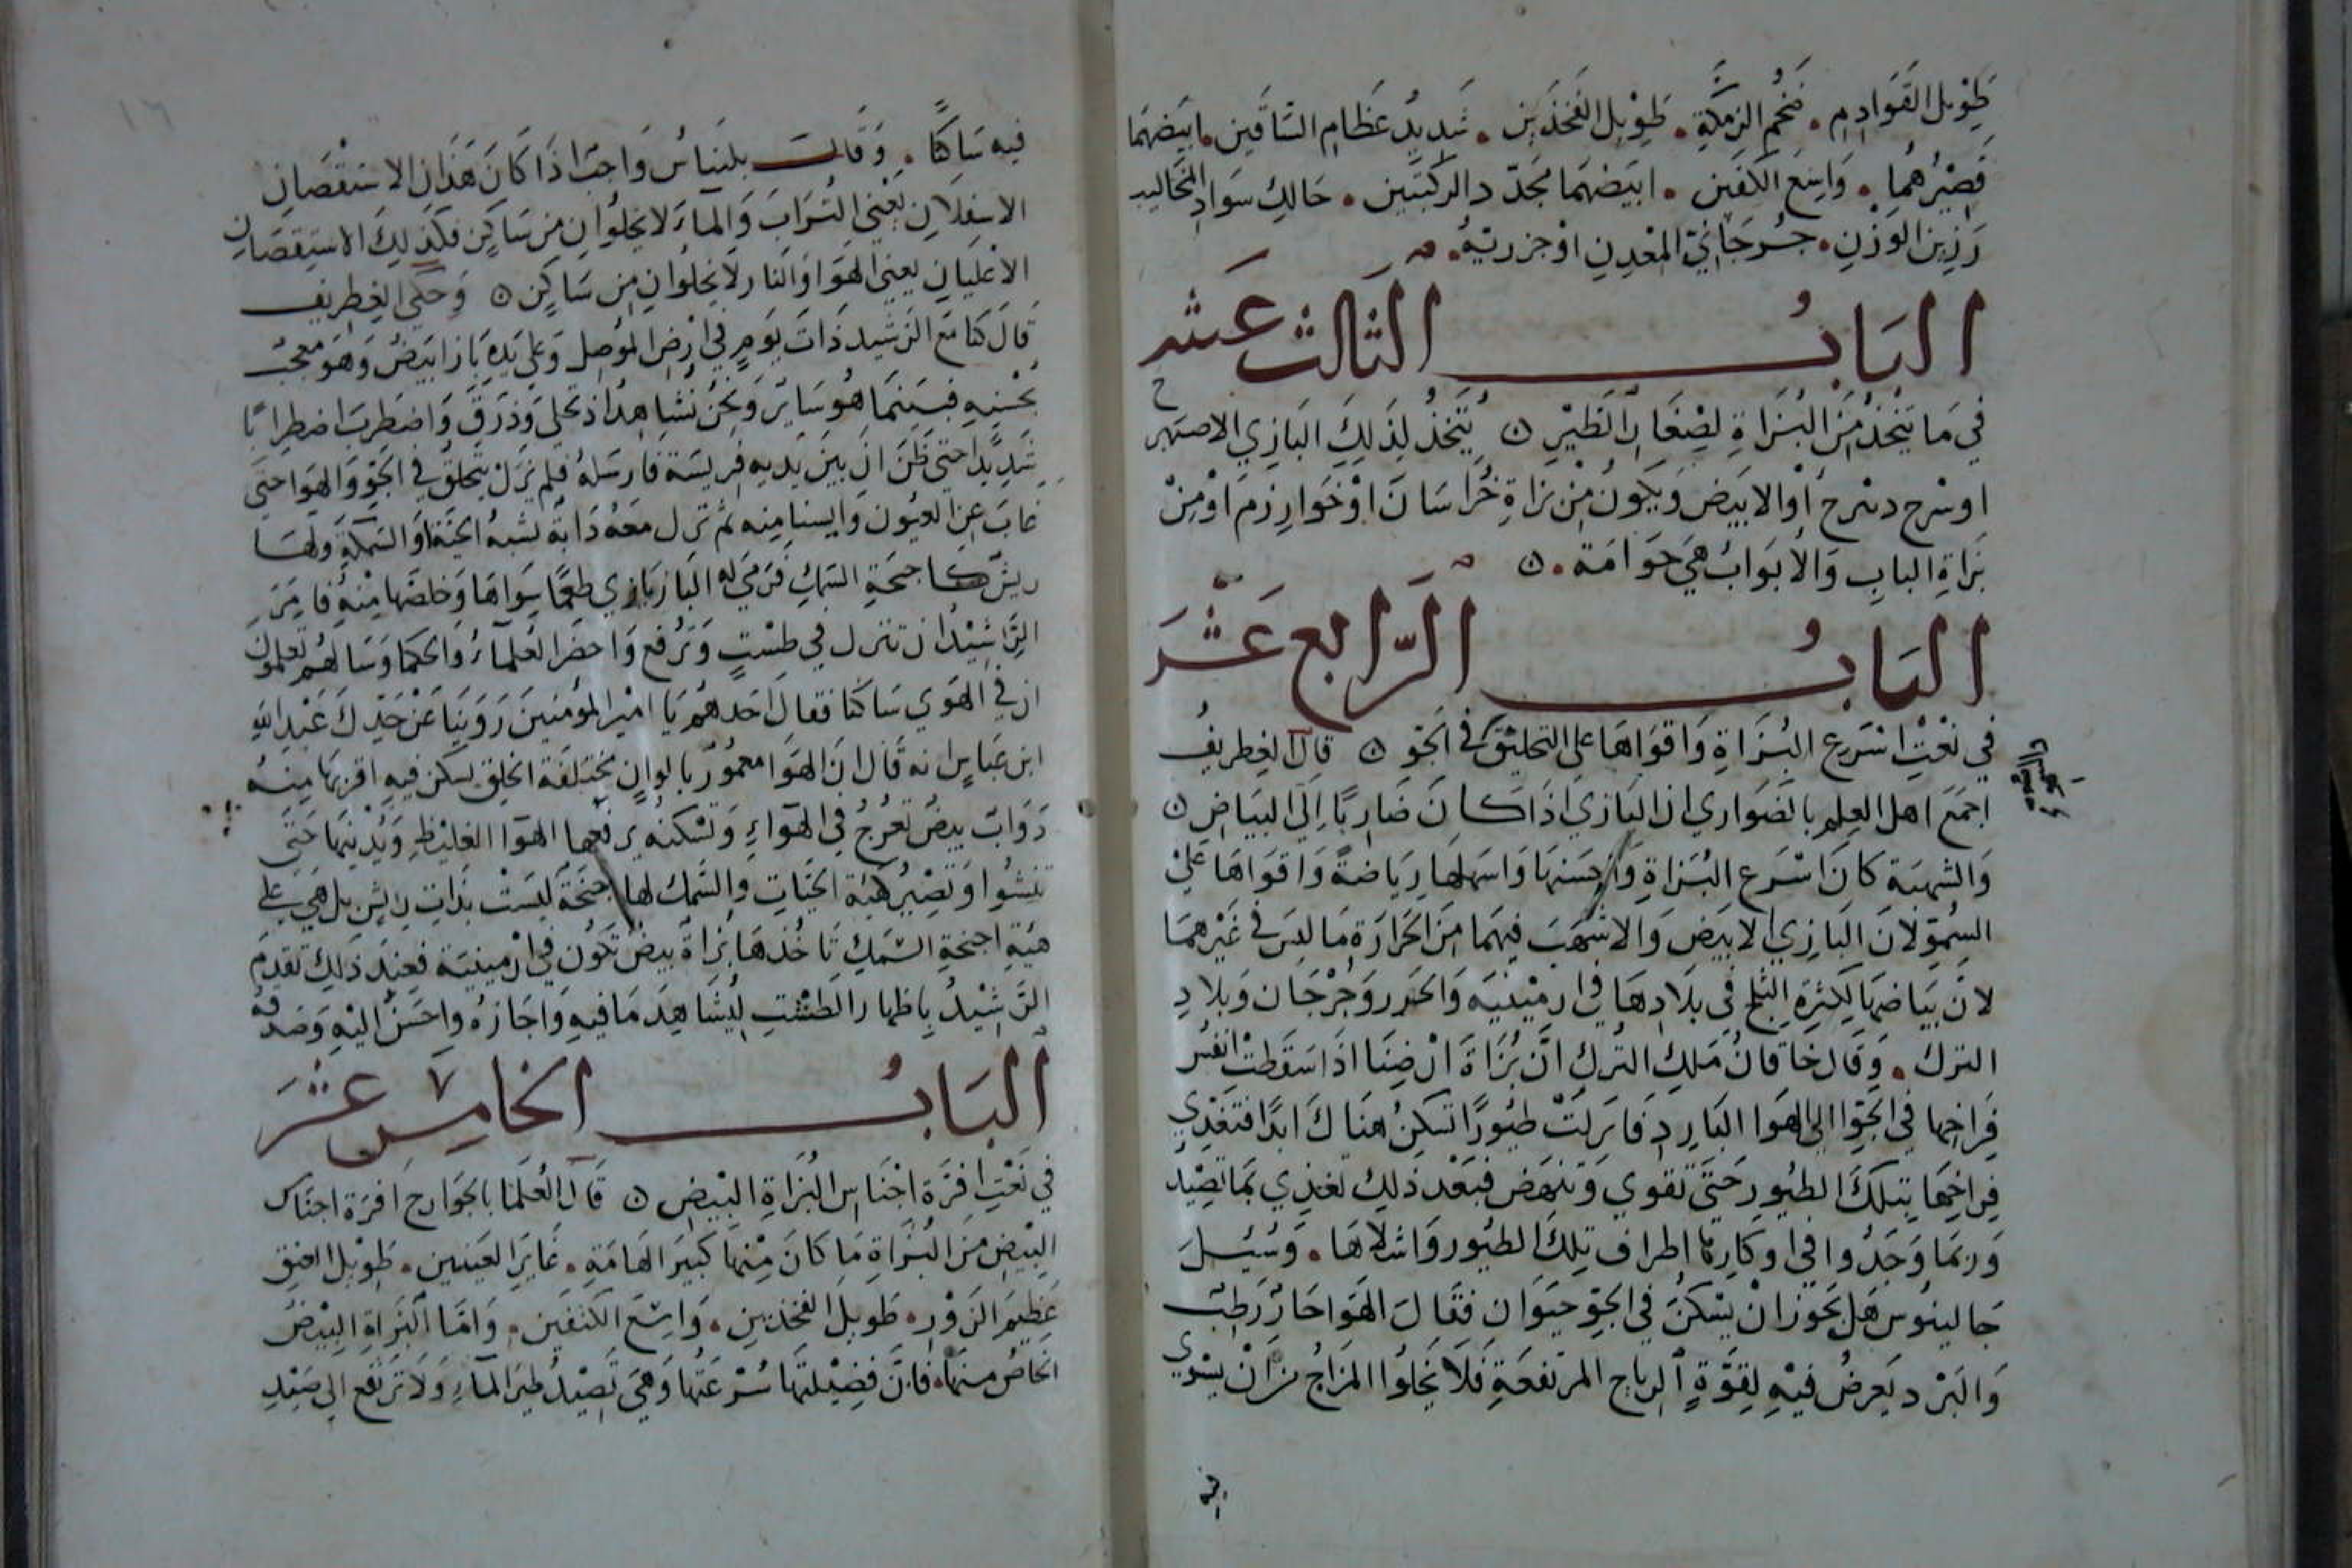 طَوِيل القَوَادِم . ضَخْم الزمكَّةِ . طَوِيل الفَخذَين . شَدِيد عَظَامِ السَّاقَين . ابيَضهَما
قَصِيْرُهُما . وَاسِعَ الكَفَين . ابيَضهَما مجَدّد الركبَتَين . حَالِكِ سَوَاد المخَاليب
رَزِين الوَزْنِ . جُرجَانِيّ المعْدِنِ اوْ جزريّهُ .
البَابُ الثالث عَشر
في مَا يتخذُ مِنَ البُزَاةِ لِصِغَارِ الطَيْرِ ٥ يُتَّخَذُ لِذَلِكَ البَازِي الاصهَر
او دسرح أوْ الابيَض وَيَكونُ مِنْ بزاةِ خُراسَانَ اوْ خَوَارِزمَ اوْ مِنْ
بَزَاةِ البابِ وَالأبوَابُ هيَ حوَامَة . ٥
البَابُ الرّابع عَشَر
في نَعْتِ اسْرَعِ البُزَاةِ وَاقوَاهَا على التحليْق في الجَوّ ٥ قال الغطريفُ
اجمَعَ اهل العِلمِ بالضَوَاري ان البَازي اذَا كانَ ضَاربًا إلَى البيَاضِ ٥
وَالشهبَة كانَ اسْرَعِ البُزاةِ وَاحسَنهَا وَاسهَلهَا رِيَاضَةً وَاقوَاهَا عَليْ
السُموّ لانَ البَازِي الابيَض وَالاشهَبَ فِيهَما مِنَ الحَرارَةِ مَا ليسَ في غَيْرهمَا
لانّ بيَاضهَا لِكثرَةِ الثلج في بلَادِهَا في ارمِيْنيَه وَالخزر وَجُرْجَان وَبلادِ
الترك . وَقَال خَاقَانُ مَلِكِ التُركِ انَّ بُزَاةَ ارْضِنَا اذَا اسَقَطتْ انفسُ
فِرَاخِها في الجَوّ الي الهوَا البَارِدِ فَانزلَتْ طيُورًا تسكِنُ هنَاكَ ابدًا فتغذي
فِرَاخِهَا بتلكَ الطيُور حَتى تقوي وَتنهَض فَبَعْد ذَلِك تغذِي بمَا تصِيْدُ
وَربمَا وَجَدُوا في اوكارِها اطراف تِلكَ الطيُور وَاشلاهَا . وَسُئِلَ
جَالينوس هَل يَجوز انْ يسْكنَ في الجَوّ حيَوان فقَالَ الهَوا حَارّ رَطبٌ
وَالبَرْد يَعرضُ فيْهِ لِقوَّةِ الرياح المرتفعَةِ فَلَا يَخلُوا المزَاجُ مِنْ انْ يسْوي
فيه
فيه سَاكنًا . وَقَالت بلنيَاسُ وَاجبَ اذَا كَانَ هَذَانِ الاستقصَان
الاسفلَانِ يَعْنِي التُرَابَ وَالمآءَ لا يَخلُوانِ مِن سَاكِن فكَذَلِكَ الاستقصَان
الاعْليَانِ يعني الهَوا وَالنار لَا يخلُوانِ مِن سَاكِن ٥ وَحكي الغِطريف
قَالَ كنّا مَع الرَشيد ذَاتَ يَومٍ في ارْض الموصِل وَعلى يَدهِ بَاز ابيَضُ وَهوَ معجبٌ
بحُسْنِهِ فبَينمَا هُوَ سَاير وَنحنُ نُشاهِدُ اذ تحلي وَذرَق وَاضطربَ اضطِرابًا
شَدِيدًا حتى ظَنّ انّ بَيْنَ يَديه فريسَة فارسَلهُ فلم يَزَلْ يتحلّقُ في الجَوّ وَالهوَا حتى
غابَ عن العيُون وَايسنا مِنه ثم نزل معَهُ دَابّة تشبهُ الحيّة اوَ السَمكةِ وَلهَا
ريشٌ كاجنحَةِ السَمك فرمَي له البَازيَاري طعمًا سِوَاهَا وَخلصَهَا مِنْهُ فامَرَ
الرَّشِيْدُ ان تنزل في طسْتٍ وَترفع وَاحضر العُلمآءُ والحكمَا وَسَالهُم تعلموُن
ان في الهَوي سَاكنا فقال احَدهُم يَا امير المؤمنينَ رَوَينَا عَنْ جَدّكَ عَبْدِ اللهِ
ابن عبَاسٍ انه قَال ان الهَوَا معمُوْرٌ بالوانٍ مختَلفَة الخلق تسكن فيهِ اقربهَا مِنْهُ
دَوَابّ بيضٌ تعْرُجُ في الهَوآءِ وَتسكنه يرفعهَا الهوآ الغلِيْظِ وَيُدْنِيهَا حَتى
تنشوا وَتصِيْرُ هَيئة الحيَّات والسَّمك لها اجنحَة ليسَتْ بذَاتِ ريش بل هَي علي
هَيْئَةِ اجنحةِ السَمكِ تَاخُذهَا بُزاة بيض تكون في ارْمينيَة فعندَ ذَلكَ تقدَمَ
الرَّشِيْدُ بِاظهار الطَشْتِ ليُشَاهِدَ مَا فيهِ وَاجَازهُ واحسَنَ اليْهِ وَصدقهُ
البَابُ الخامِس عَشَر
في نَعْتِ افرَة اجْنَاسِ البُزَاةِ البِيْضِ ٥ قَال العُلمَا بالجوَارح افرَة اجناس
البِيْضِ مِنَ البُزَاةِ مَا كَانَ مِنْهَا كبيرَ الهَامَةِ . غَايرَ العَينين . طَوِيْل العنق
عَظيْمَ الزَوْر . طَوِيل الفخذَين . وَاسِعَ الكتفَين . وَامَّا البُزَاةِ البِيْضُ
الخاصُ منهَا . فانَّ فَضِيْلتهَا سُرْعَتُهَا وَهِيَ تَصِيْدُ طير المآءِ وَلَا تَرتفع الى صَيْدِ